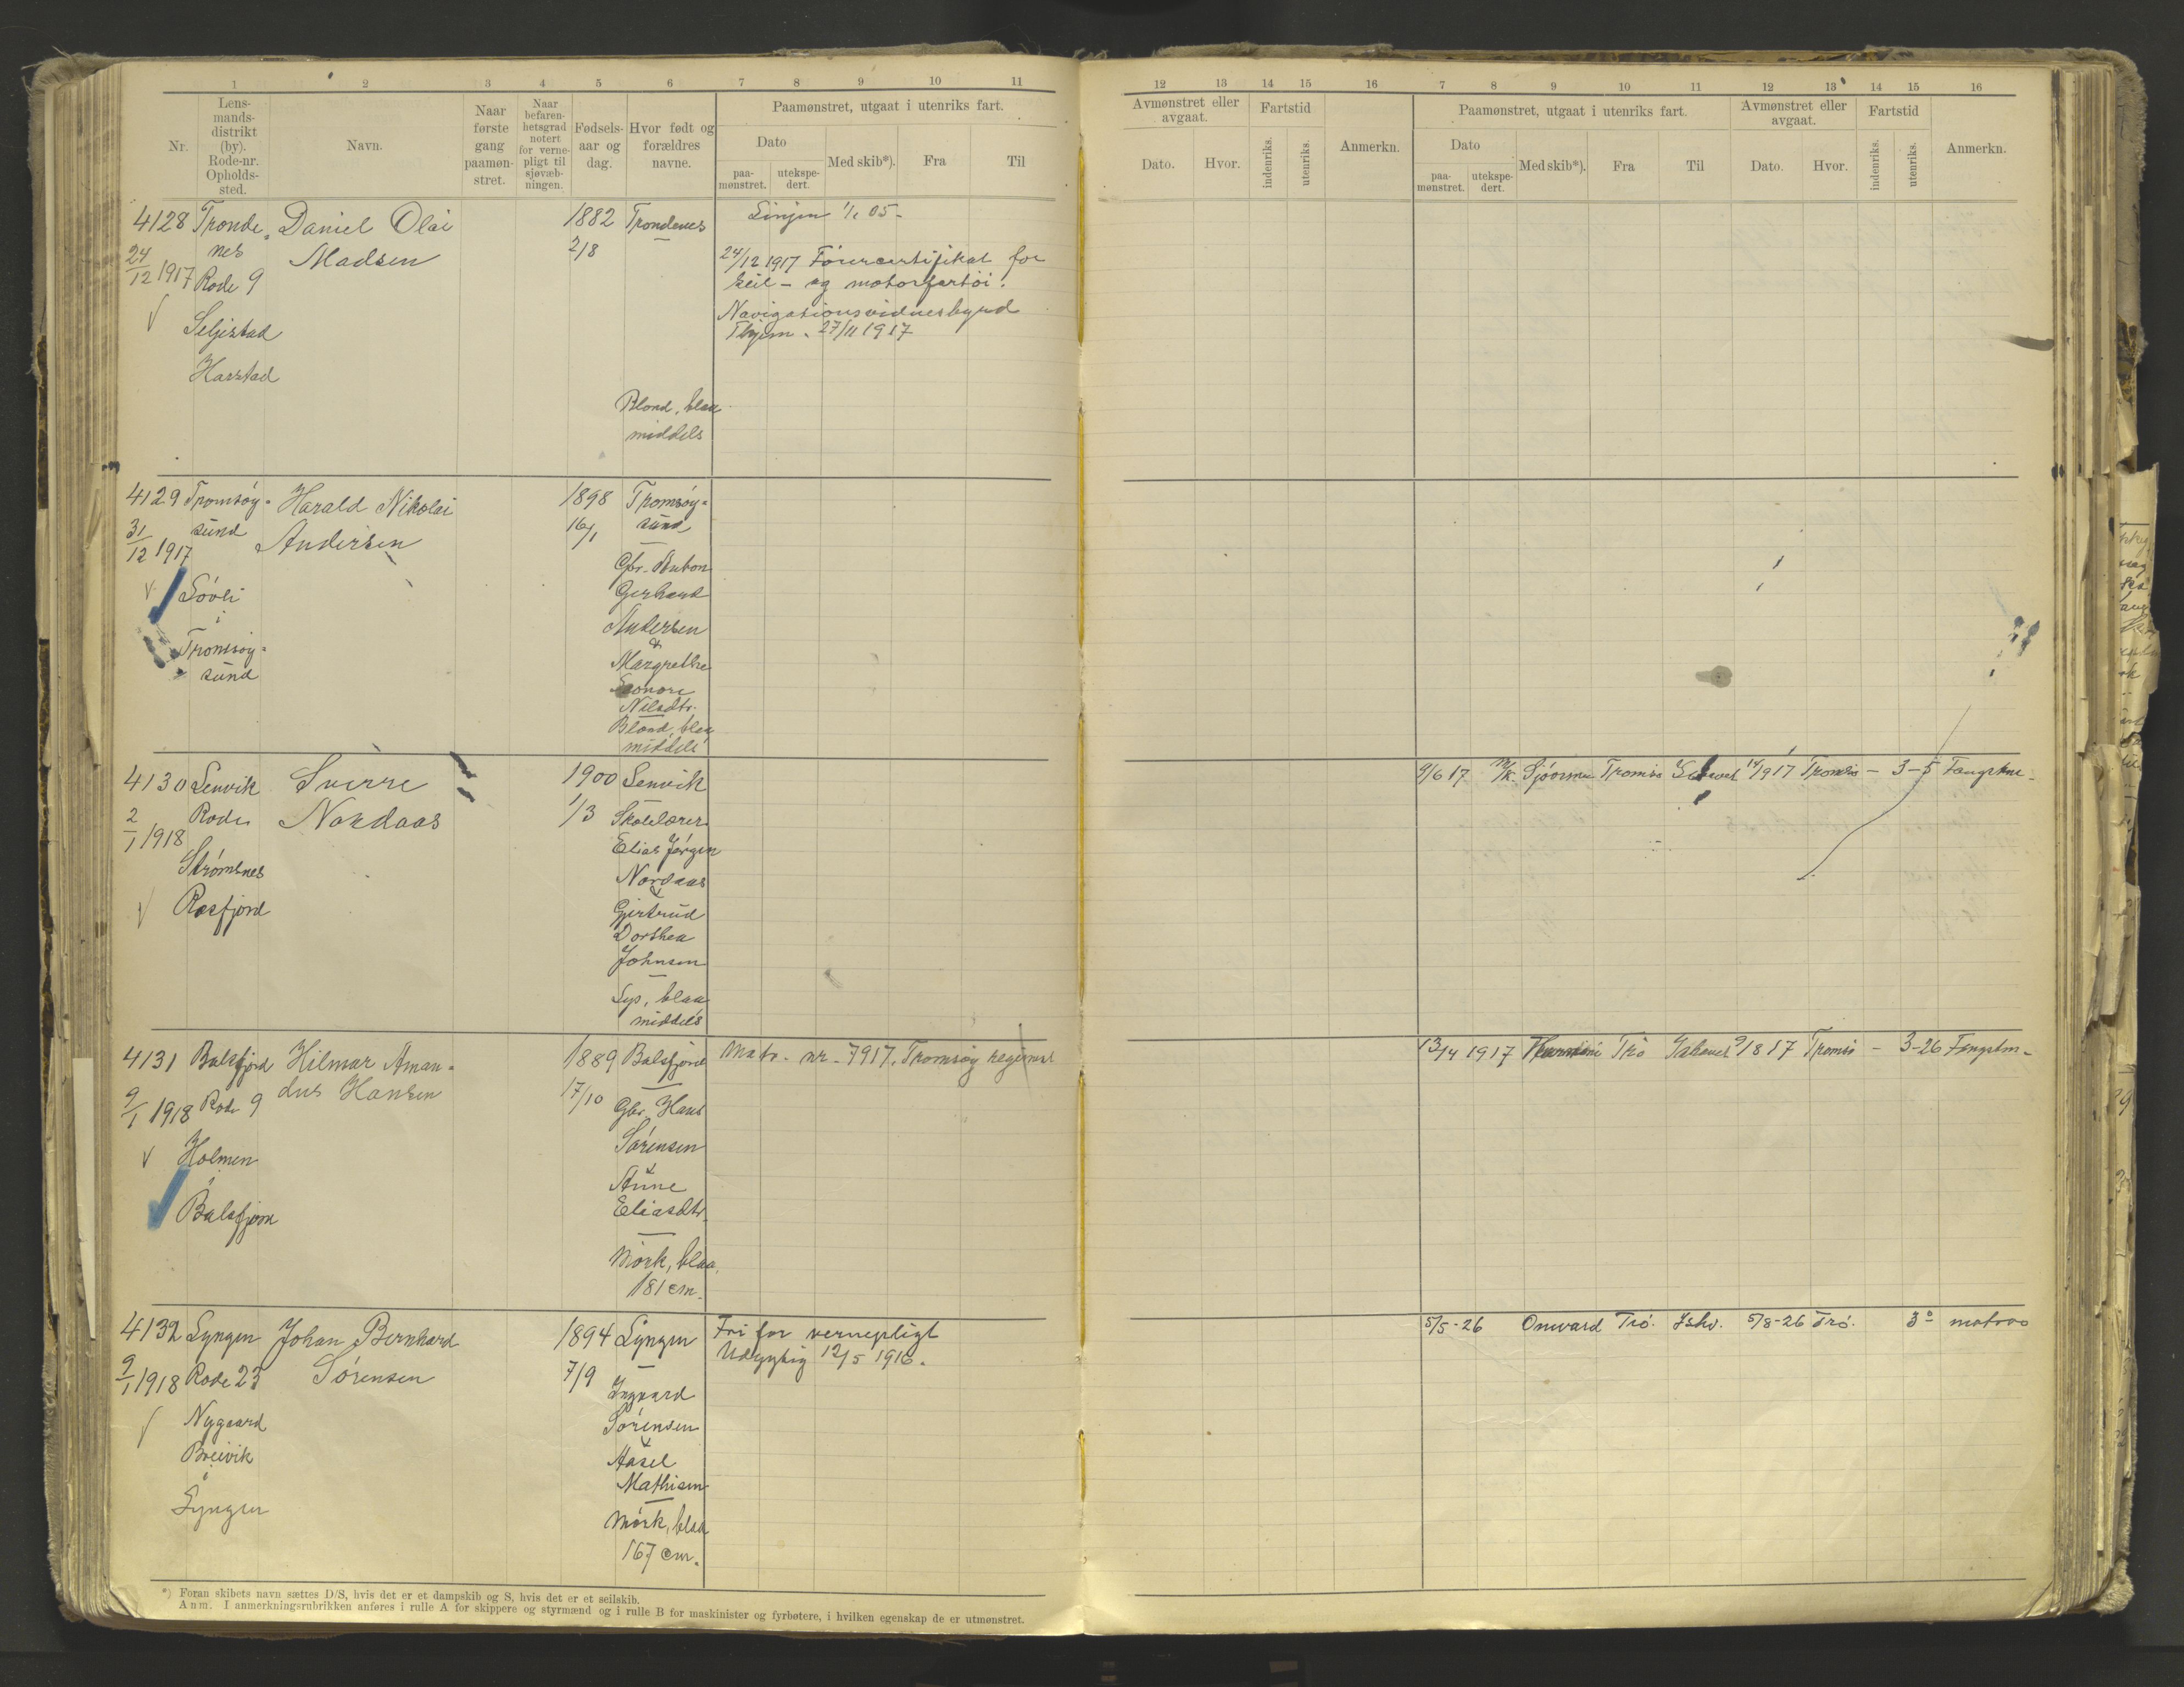 1 2 3 4 5 6 7 8 9 10 11
Nr.
Lens-
mands-
distrikt
(by).
Rode-nr.
Opholds-
sted.
Navn.
Naar
første
gang
paamøn-
stret.
Naar
befaren-
hetsgrad
notert
for verne-
pligt til
sjøvæb-
ningen.
Fødsels-
aar og
dag.
Hvor født og
forældres
navne.
Paamønstret, utgaat i utenriks fart.
Dato
paa-
mønstret.
utekspe-
dert.
Med skib*).
Fra
Til
12 13 14 15 16 7 8 9 10 11 12 13 14 15 16
Avmønstret eller
avgaat.
Dato.
Hvor.
Fartstid
indenriks.
utenriks.
Anmerkn.
Paamønstret, utgaat i utenriks fart.
Dato
paa-
mønstret.
utekspe-
dert.
Med skib*).
Fra
Til
Avmønstret eller
avgaat.
Dato.
Hvor.
Fartstid
indenriks.
utenriks.
Anmerkn.
4128
24/12 1917
Tronde-
nes
Rode 9
Seljestad
Harstad
Daniel Olai
Madsen
1882
2/8
Trondenes
Blond, blaa
middels
Linjen 1/1 05-
24/12 1917 Førercertifikat for
seil- og motorfartøi.
Navigationsvidnesbyrd
Thjem. 27/11 1917
4129
31/12 1917
Tromsøy-
sund
Løvli
i
Tromsøy-
sund
Harald Nikolai
Andersen
1898
16/1
Tromsøy-
sund
Gbr. Anton
Gerhard
Andersen
&
Margrethe
Leonore
Nilsdtr.
Blond, blaa
middels
4130
2/1 1918
Lenvik
Rode
Strømsnes
Rosfjord
Sverre
Nordaas
1900
1/3
Lenvik
Skolelærer
Elias Jørgen
Nordaas
&
Gjertrud
Dorthea
Johnsen
Lys, blaa
middels
9/6 17 M/K. Tromsø 17 Tromsø - 3-5 Fangstm.
4131
9/1 1918
Balsfjord
Rode 9
Holmen
i
Balsfjord
Hilmar Aman-
dus Hansen
1889
17/10
Balsfjord
Gbr. Hans
Sørensen
&
Anne
Eliasdtr.
Mørk, blaa,
181 cm.
Matr. nr. 7917. Tromsøy regiment
13/4 1917 Trø Ishavet 9/8 17 Tromsø - 3-26 Fangstm.
4132
9/1 1918
Lyngen
Rode 23
Nygaard
Breivik
i
Lyngen
Johan Bernhard
Sørensen
1894
7/9
Lyngen
Ingvard
Sørensen
&
Aasel
Mathisen
Mørk, blaa
167 cm.
Fri for vernepligt
Udygtig 12/5 1916.
5/5-26 Onward Trø. Ishv. 5/8-26 Trø. 3° matros
*) Foran skibets navn sættes D/S, hvis det er et dampskib og S, hvis det er et seilskib.
Anm. I anmerkningsrubrikken anføres i rulle A for skippere og styrmænd og i rulle B for maskinister og fyrbøtere, i hvilken egenskap de er utmønstret.